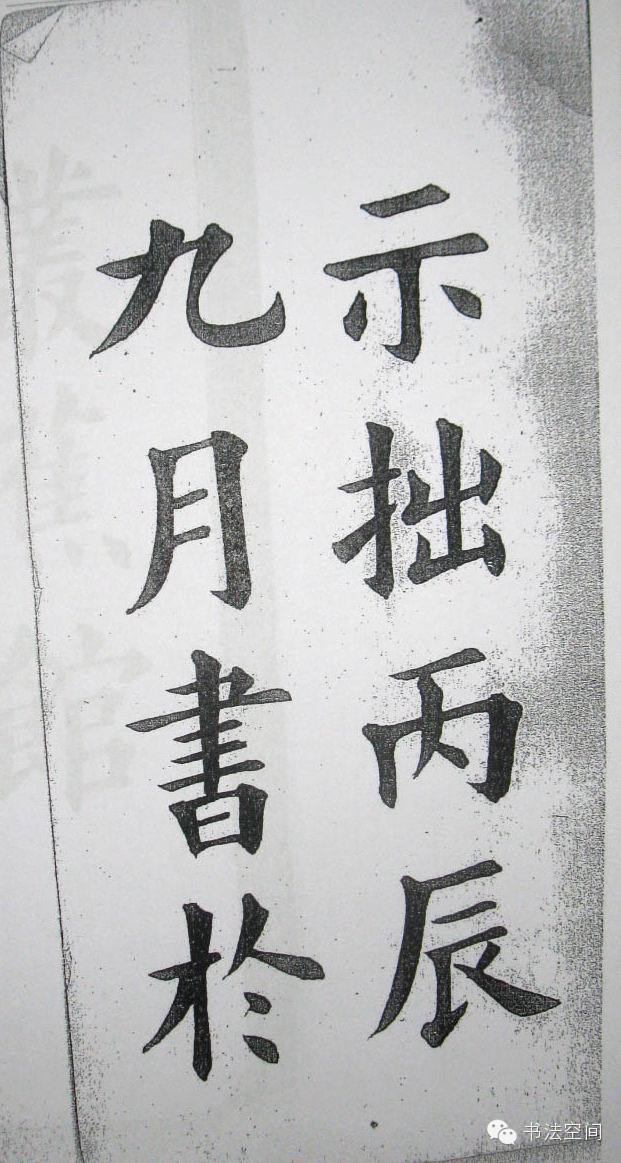 示拙丙辰
九月書於
書法空间